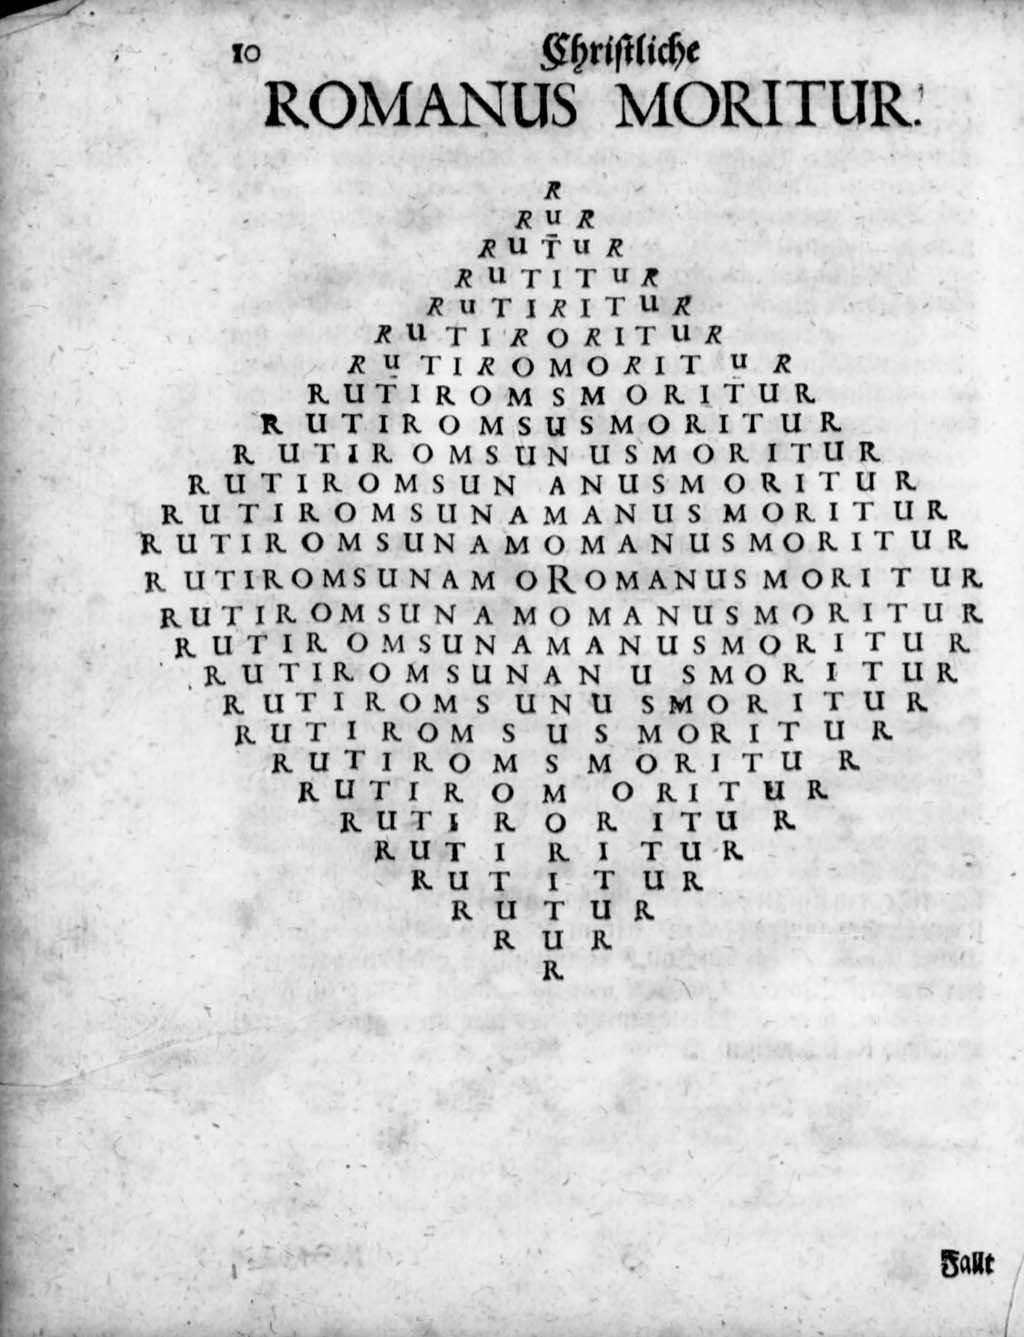 10 Christliche
ROMANUS MORITUR.
R
R U R
R U T U R
R U T I T U R
R U T I R I T U R
R U T I R O R I T U R
R U T I R O M O R I T U R
R U T I R O M S M O R I T U R
R U T I R O M S U S M O R I T U R
R U T I R O M S U N U S M O R I T U R
R U T I R O M S U N A N U S M O R I T U R
R U T I R O M S U N A M A N U S M O R I T U R
R U T I R O M S U N A M O M A N U S M O R I T U R
R U T I R O M S U N A M O R O M A N U S M O R I T U R
R U T I R O M S U N A M O M A N U S M O R I T U R
R U T I R O M S U N A M A N U S M O R I T U R
R U T I R O M S U N A N U S M O R I T U R
R U T I R O M S U N U S M O R I T U R
R U T I R O M S U S M O R I T U R
R U T I R O M S M O R I T U R
R U T I R O M O R I T U R
R U T I R O R I T U R
R U T I R I T U R
R U T I T U R
R U T U R
R U R
R
Fallt